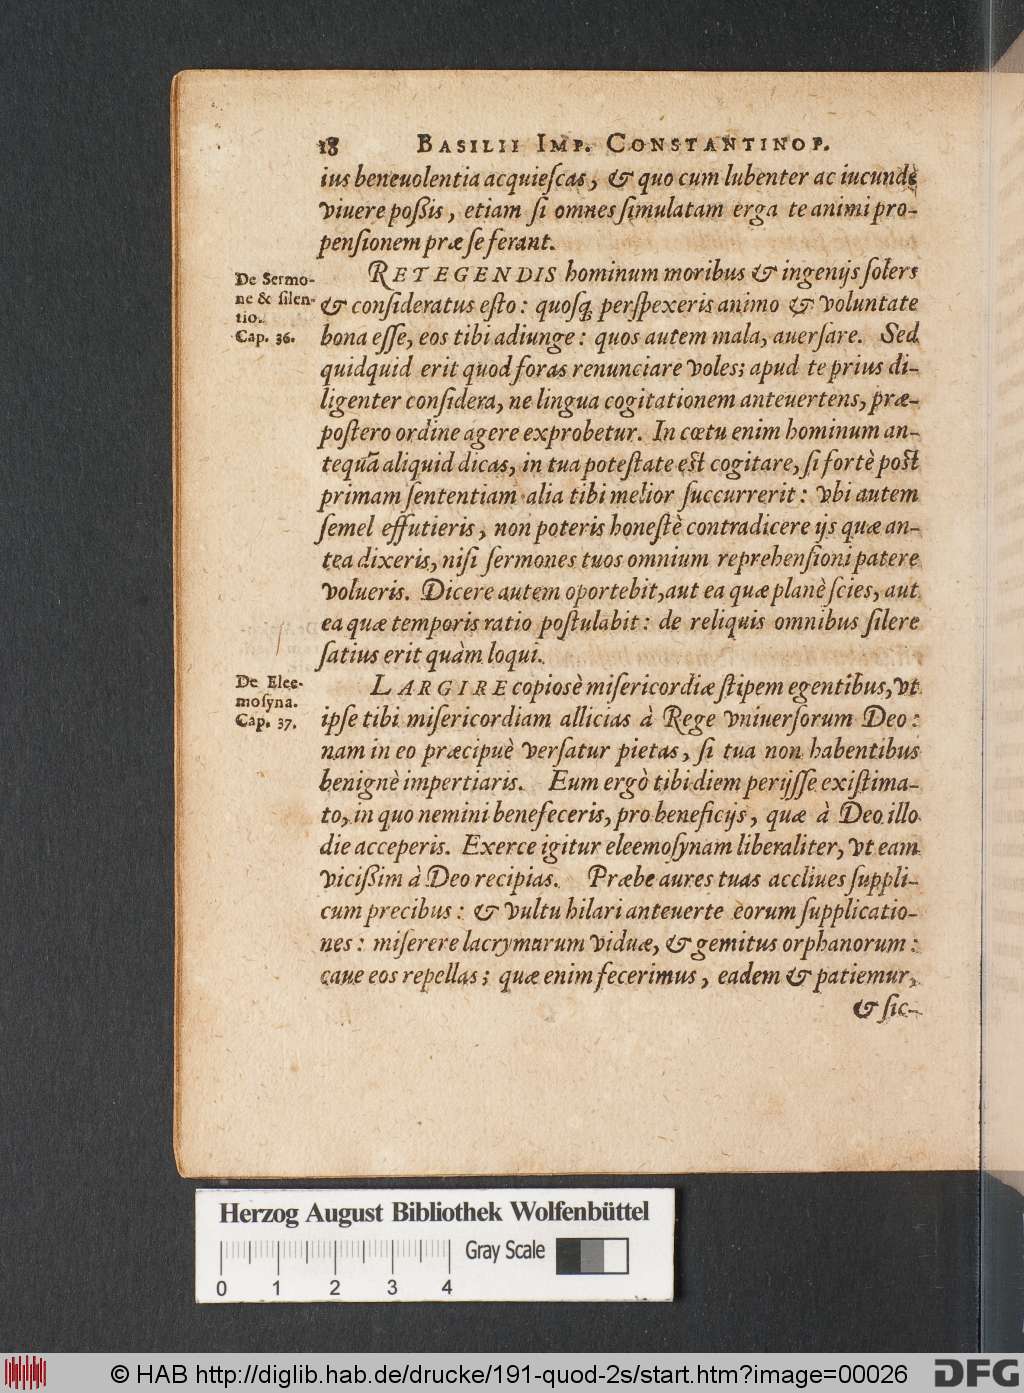 18 BASILII IMP. CONSTANTINOP.
ius beneuolentia acquieſcas, & quo cum lubenter ac iucundè
viuere poßis, etiam ſi omnes ſimulatam erga te animi pro-
penſionem præ ſe ferant.
De Sermo-
ne & ſilen-
tio.
Cap. 36.
RETEGENDIS hominum moribus & ingenijs ſolers
& conſideratus eſto: quoſq; perſpexeris animo & voluntate
bona eſſe, eos tibi adiunge: quos autem mala, auerſare. Sed
quidquid erit quod foras renunciare voles; apud te prius di-
ligenter conſidera, ne lingua cogitationem anteuertens, præ-
poſtero ordine agere exprobetur. In cœtu enim hominum an-
tequã aliquid dicas, in tua poteſtate eſt cogitare, ſi fortè poſt
primam ſententiam alia tibi melior ſuccurrerit: vbi autem
ſemel effutieris, non poteris honeſtè contradicere ijs quæ an-
tea dixeris, niſi ſermones tuos omnium reprehenſioni patere
volueris. Dicere autem oportebit, aut ea quæ planè ſcies, aut
ea quæ temporis ratio poſtulabit: de reliquis omnibus ſilere
ſatius erit quàm loqui.
De Elee-
moſyna.
Cap. 37.
LARGIRE copiosè miſericordiæ ſtipem egentibus, vt
ipſe tibi miſericordiam allicias à Rege vniuerſorum Deo:
nam in eo præcipuè verſatur pietas, ſi tua non habentibus
benignè impertiaris. Eum ergò tibi diem perijſſe exiſtima-
to, in quo nemini benefeceris, pro beneficijs, quæ à Deo illo
die acceperis. Exerce igitur eleemoſynam liberaliter, vt eam
vicißim à Deo recipias. Præbe aures tuas accliues ſuppli-
cum precibus: & vultu hilari anteuerte eorum ſupplicatio-
nes: miſerere lacrymarum viduæ, & gemitus orphanorum:
caue eos repellas; quæ enim fecerimus, eadem & patiemur,
& ſic-
Herzog August Bibliothek Wolfenbüttel
Gray Scale
0 1 2 3 4
© HAB http://diglib.hab.de/drucke/191-quod-2s/start.htm?image=00026
DFG